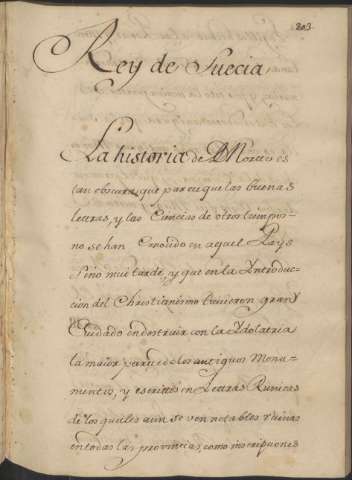 203.
Rey de Suecia
La historia de el Norte es
tan obscura, que parece que las buenas
letras, y las Ciencias de otros tiempos
no se han Conocido en aquel Pays
Sino mui tarde, y que en la Introduc-
ction del Christianismo tuvieron gran
Cuidado en destruir con la Ydolatria
la maior parte de los antiguos Monu-
mentos, y escritos en Letras Runicas
de los quales aun se ven notables ruinas
en todas las provincias, como inscripciones